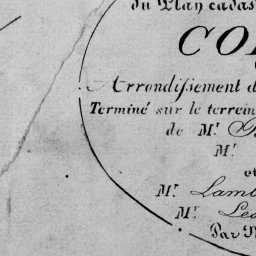 du Plan cadas
CO
Arrondissement d
Terminé sur le terrein
de Mr.
Mr.
et
Mr. Lamb
Mr. Le
Par